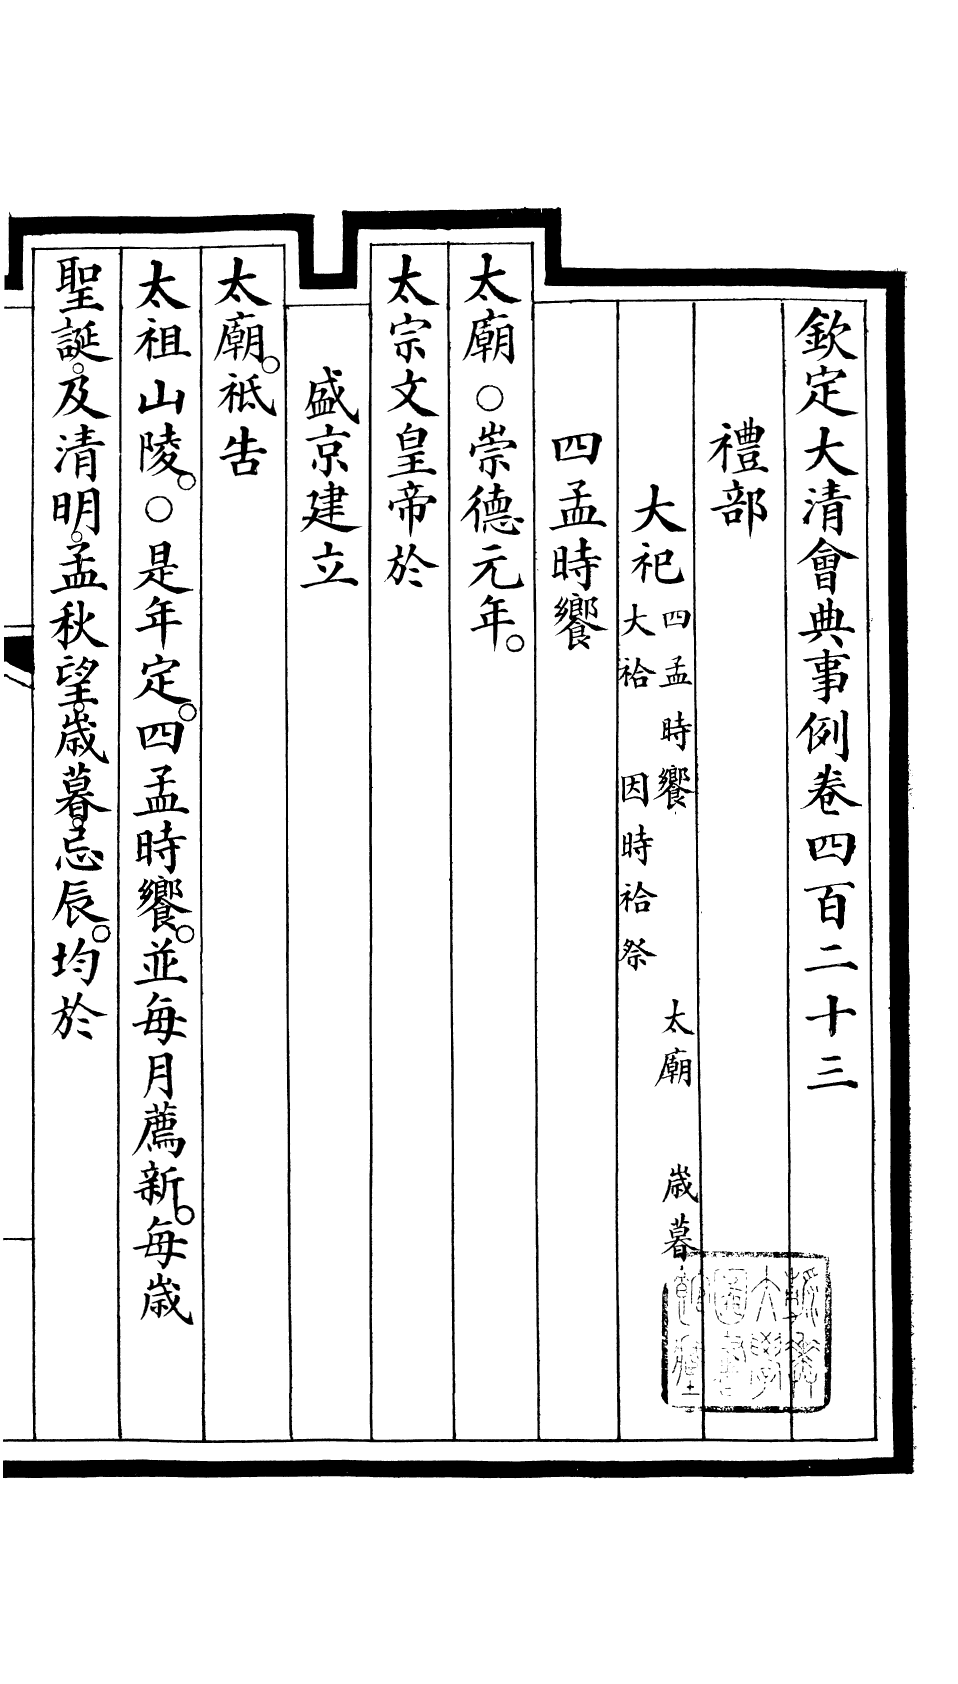 欽定大清會典事例卷四百二十三
禮部
大祀四孟時饗　太廟　歲暮
大祫　因時祫祭
四孟時饗
太廟○崇德元年。
太宗文皇帝於
盛京建立
太廟。祗告
太祖山陵。○是年定。四孟時饗。並每月薦新。每歲
聖誕。及清明。孟秋望。歲暮。忌辰。均於